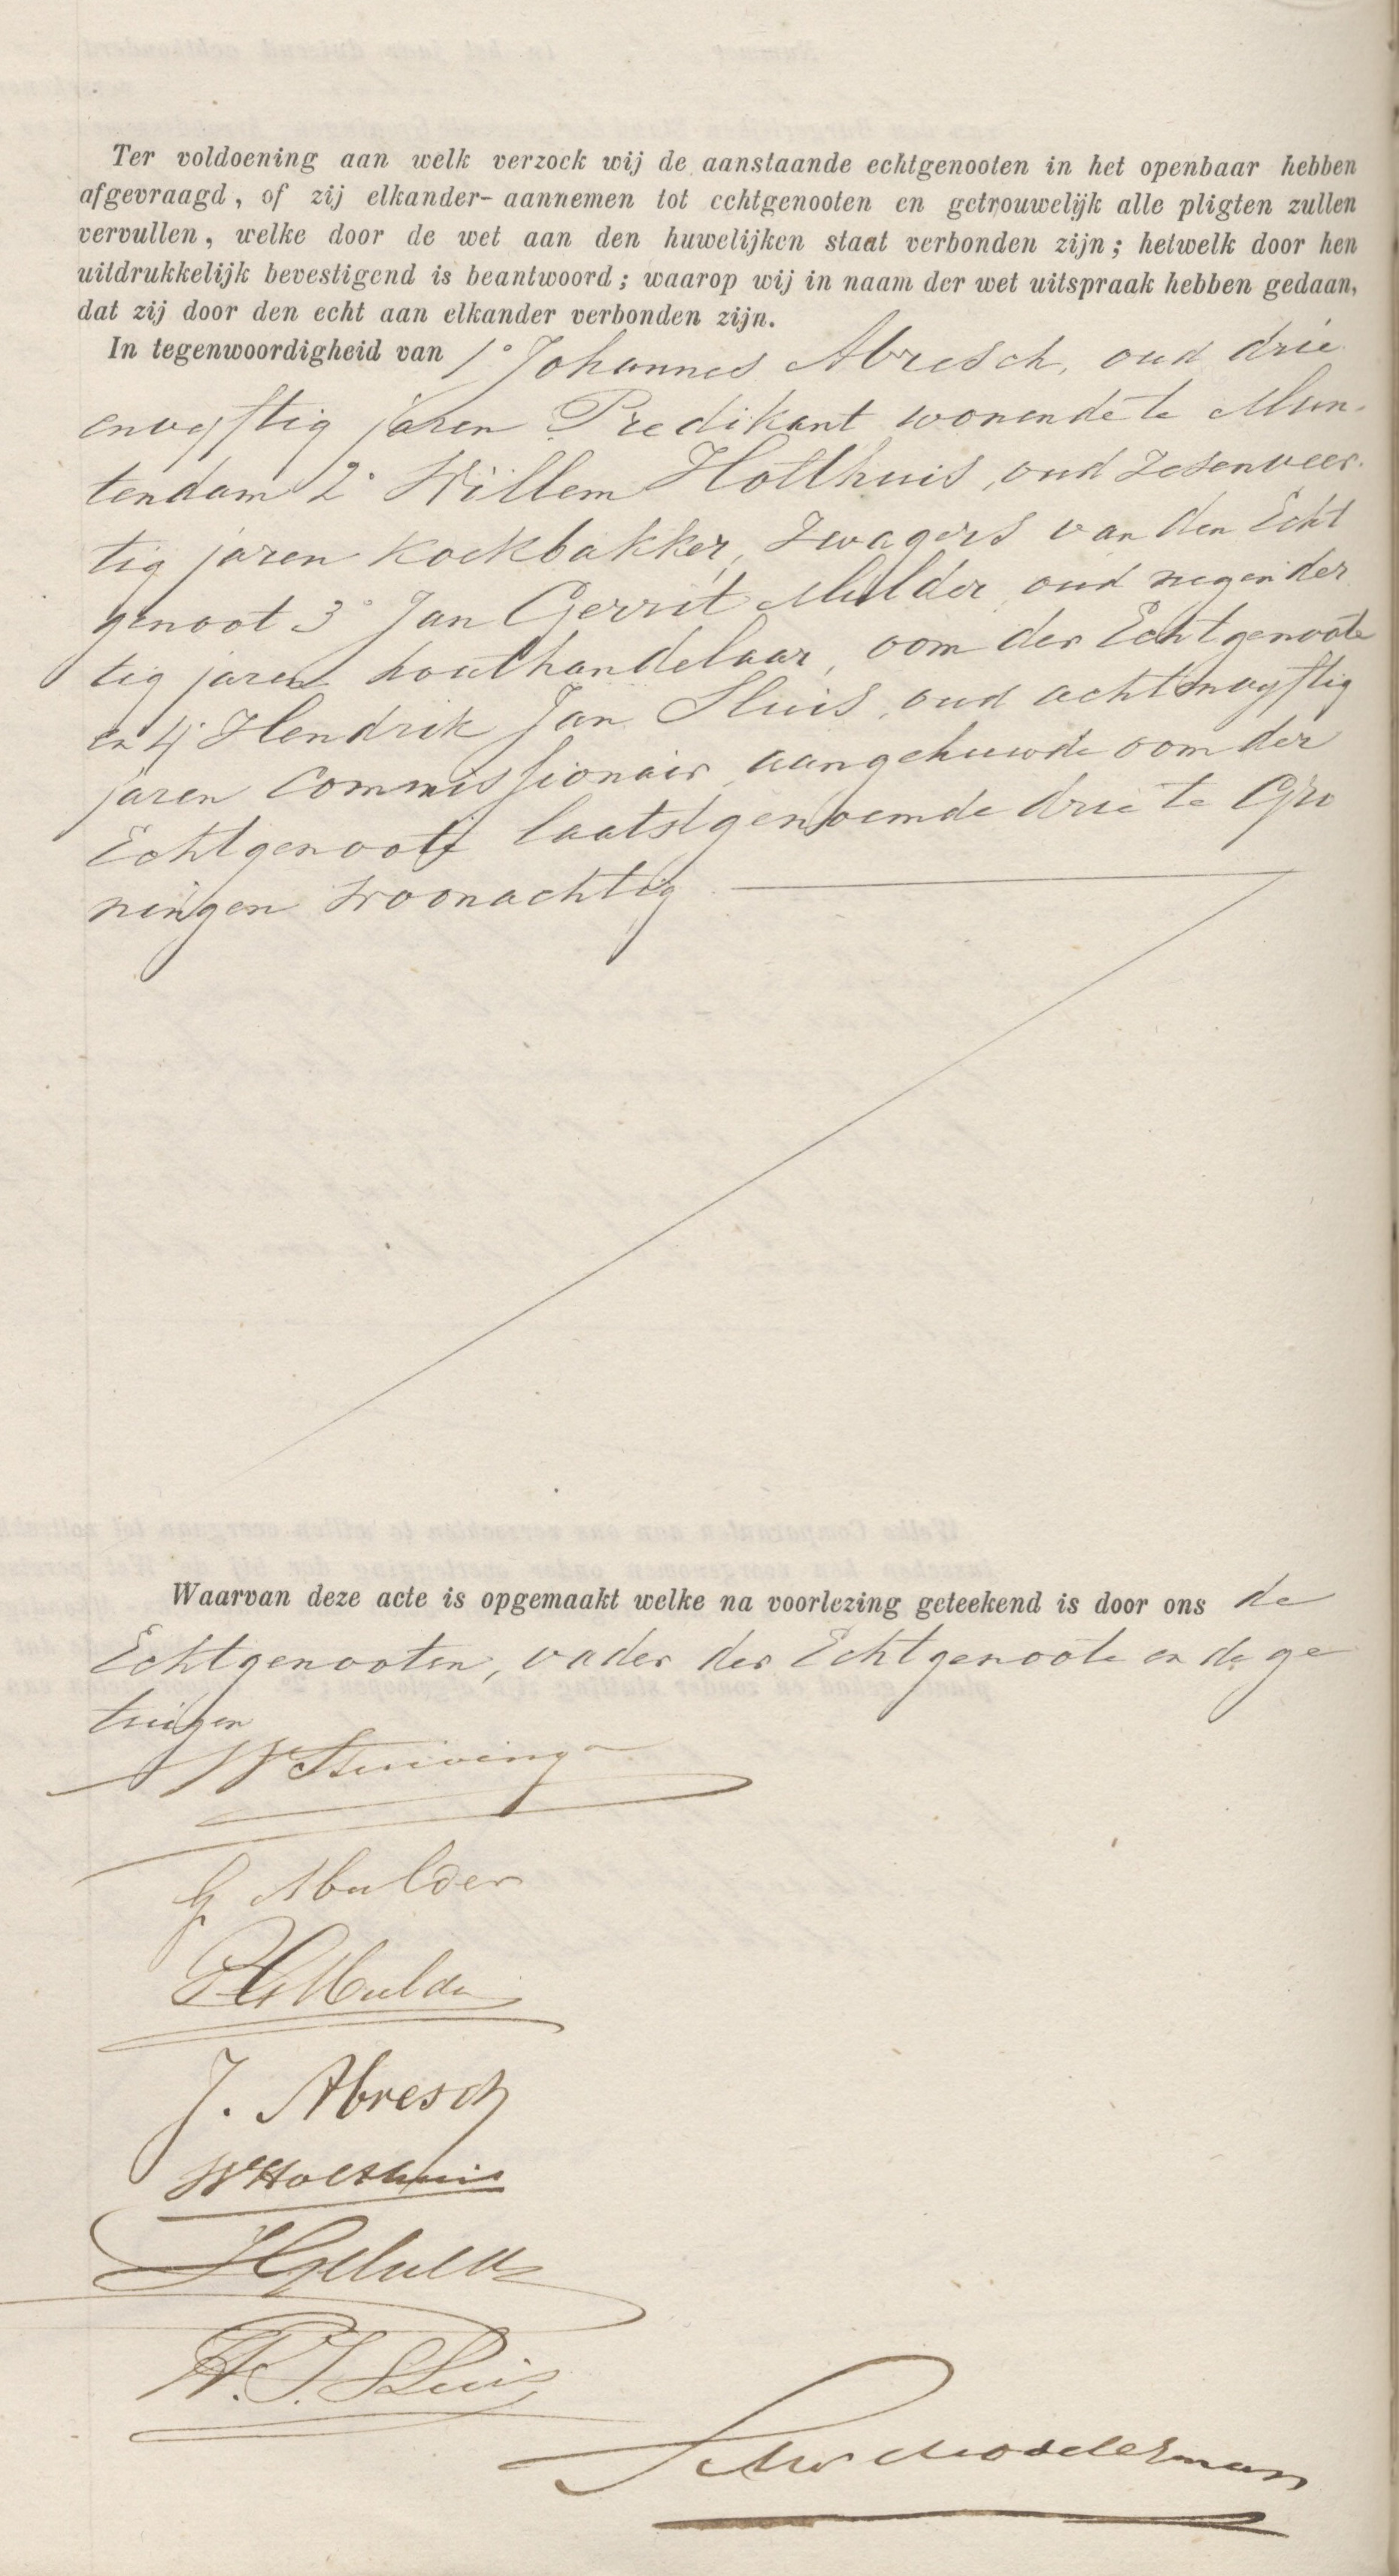 Ter voldoening aan welk verzoek wij de aanstaande echtgenooten in het openbaar hebben
afgevraagd, of zij elkander- aannemen tot echtgenooten en getrouwelijk alle pligten zullen
vervullen, welke door de wet aan den huwelijken staat verbonden zijn; hetwelk door hen
uitdrukkelijk bevestigend is beantwoord; waarop wij in naam der wet uitspraak hebben gedaan,
dat zij door den echt aan elkander verbonden zijn.
In tegenwoordigheid van 1° Johannes Abresch, oud drie
envyftig jaren Predikant wonende te Mun-
tendam 2° Willem Holthuis, oud zesenveer-
tig jaren koekbakker, zwagers van den Echt
genoot 3° Jan Gerrit Mulder oud negender
tig jaren houthandelaar, oom der Echtgenoote
en 4° Hendrik Jan Sluis, oud achtenvyftig
jaren Commissionair aangehuwde oom der
Echtgenoote laatstgenoemde drie te Gro
ningen woonachtig
Waarvan deze acte is opgemaakt welke na voorlezing geteekend is door ons de
Echtgenooten, vader der Echtgenoote en de ge
tuigen
W Stuivinga
G Mulder
Mulder
J. Abresch
W Holthuis
JG Mulder
H. J. Sluis
Modderman